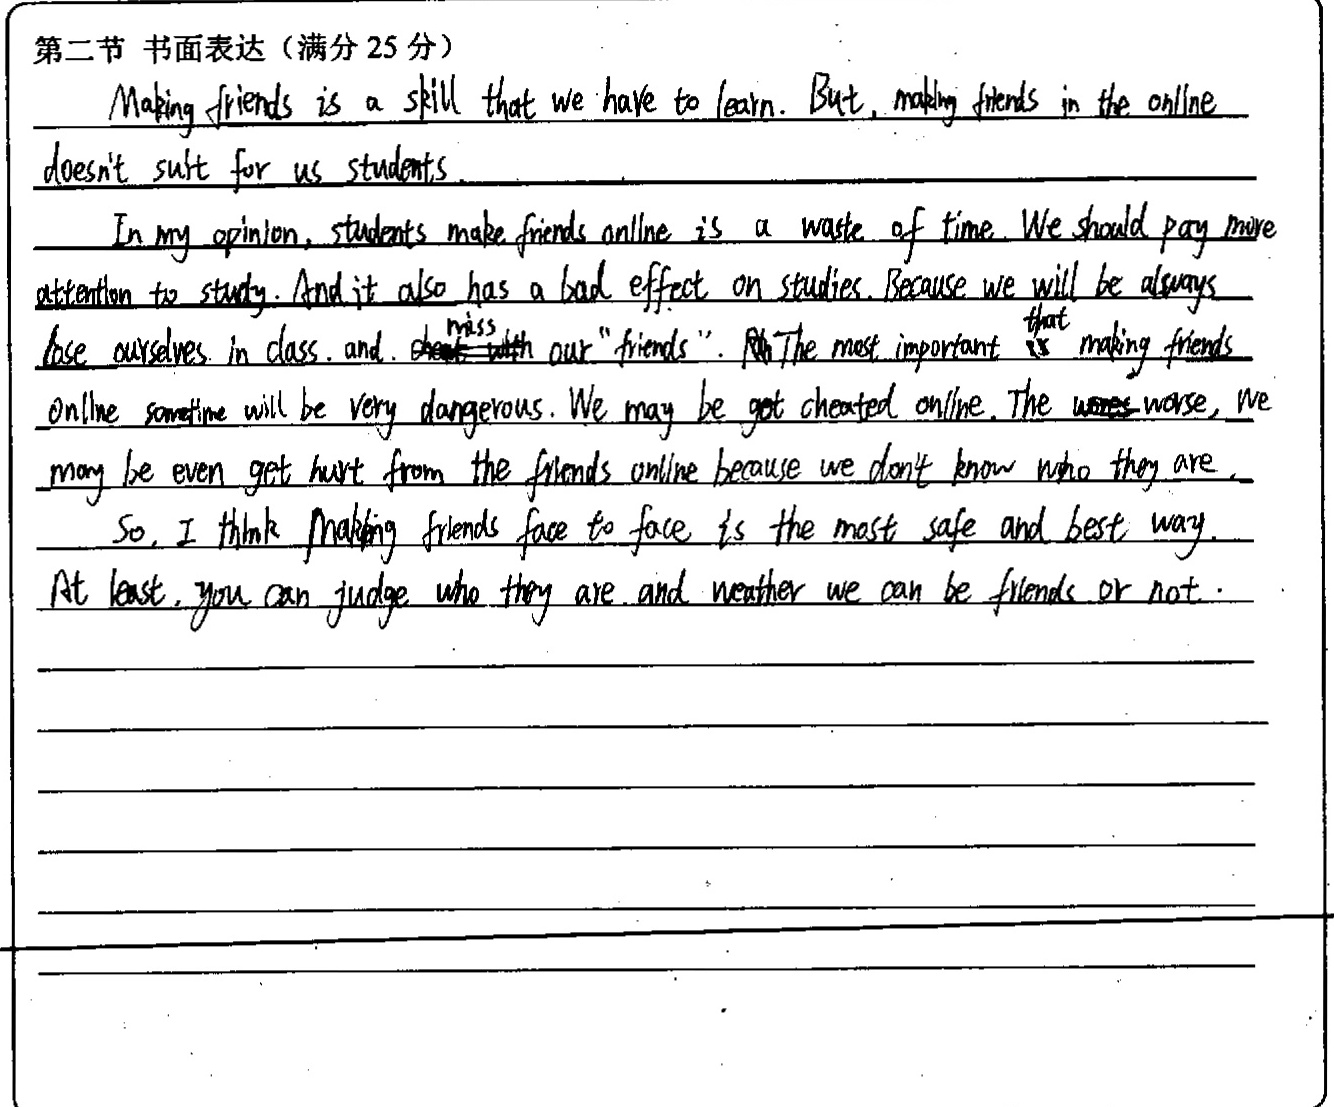 第二节 书面表达（满分 25 分）
Making friends is a skill that we have to learn. But, making friends in the online
doesn't suit for us students.
In my opinion, students make friends online is a waste of time. We should pay more
attention to study. And it also has a bad effect on studies. Because we will be always
lose ourselves in class. and. miss our "friends". The most important that making friends
online sometime will be very dangerous. We may be got cheated online. The worse, we
may be even get hurt from the friends online because we don't know who they are.
So, I think Making friends face to face is the most safe and best way.
At least, you can judge who they are and weather we can be friends or not.